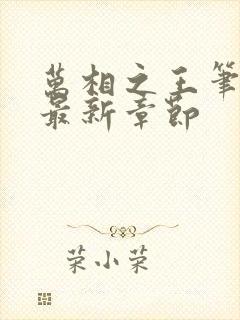 萬相之王筆
最新章節
荣小荣